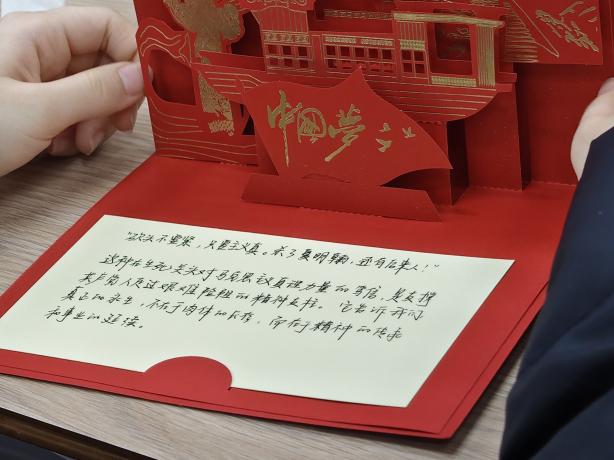 中国梦
"砍头不要紧，只要主义真。杀了夏明翰，还有后来人！"
这种在生死关头对马克思主义真理力量的笃信，是支撑
共产党人度过艰难险阻的精神支柱。它告诉我们
真正的永生，不在于肉体的长存，而在于精神的传承
和事业的延续。